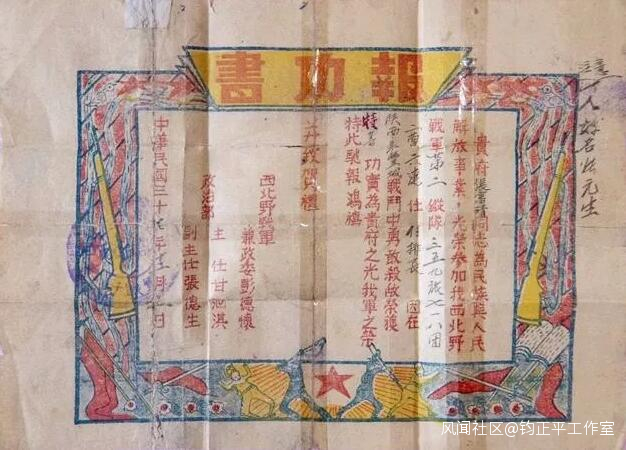 報功書
貴府張富清同志為民族與人民
解放事業，光榮參加我西北野
戰軍第二縱隊三五九旅七一八團
二營六連 任 付排長 因在
陝西永豐城戰鬥中勇敢殺敵榮獲
特等 功實為貴府之光我軍之榮
特此馳報鴻禧
并致賀禮
西北野戰軍
兼政委彭德懷
政治部
主任甘泗淇
副主任張德生
中華民國三十七年十二月 日
风闻社区@钧正平工作室